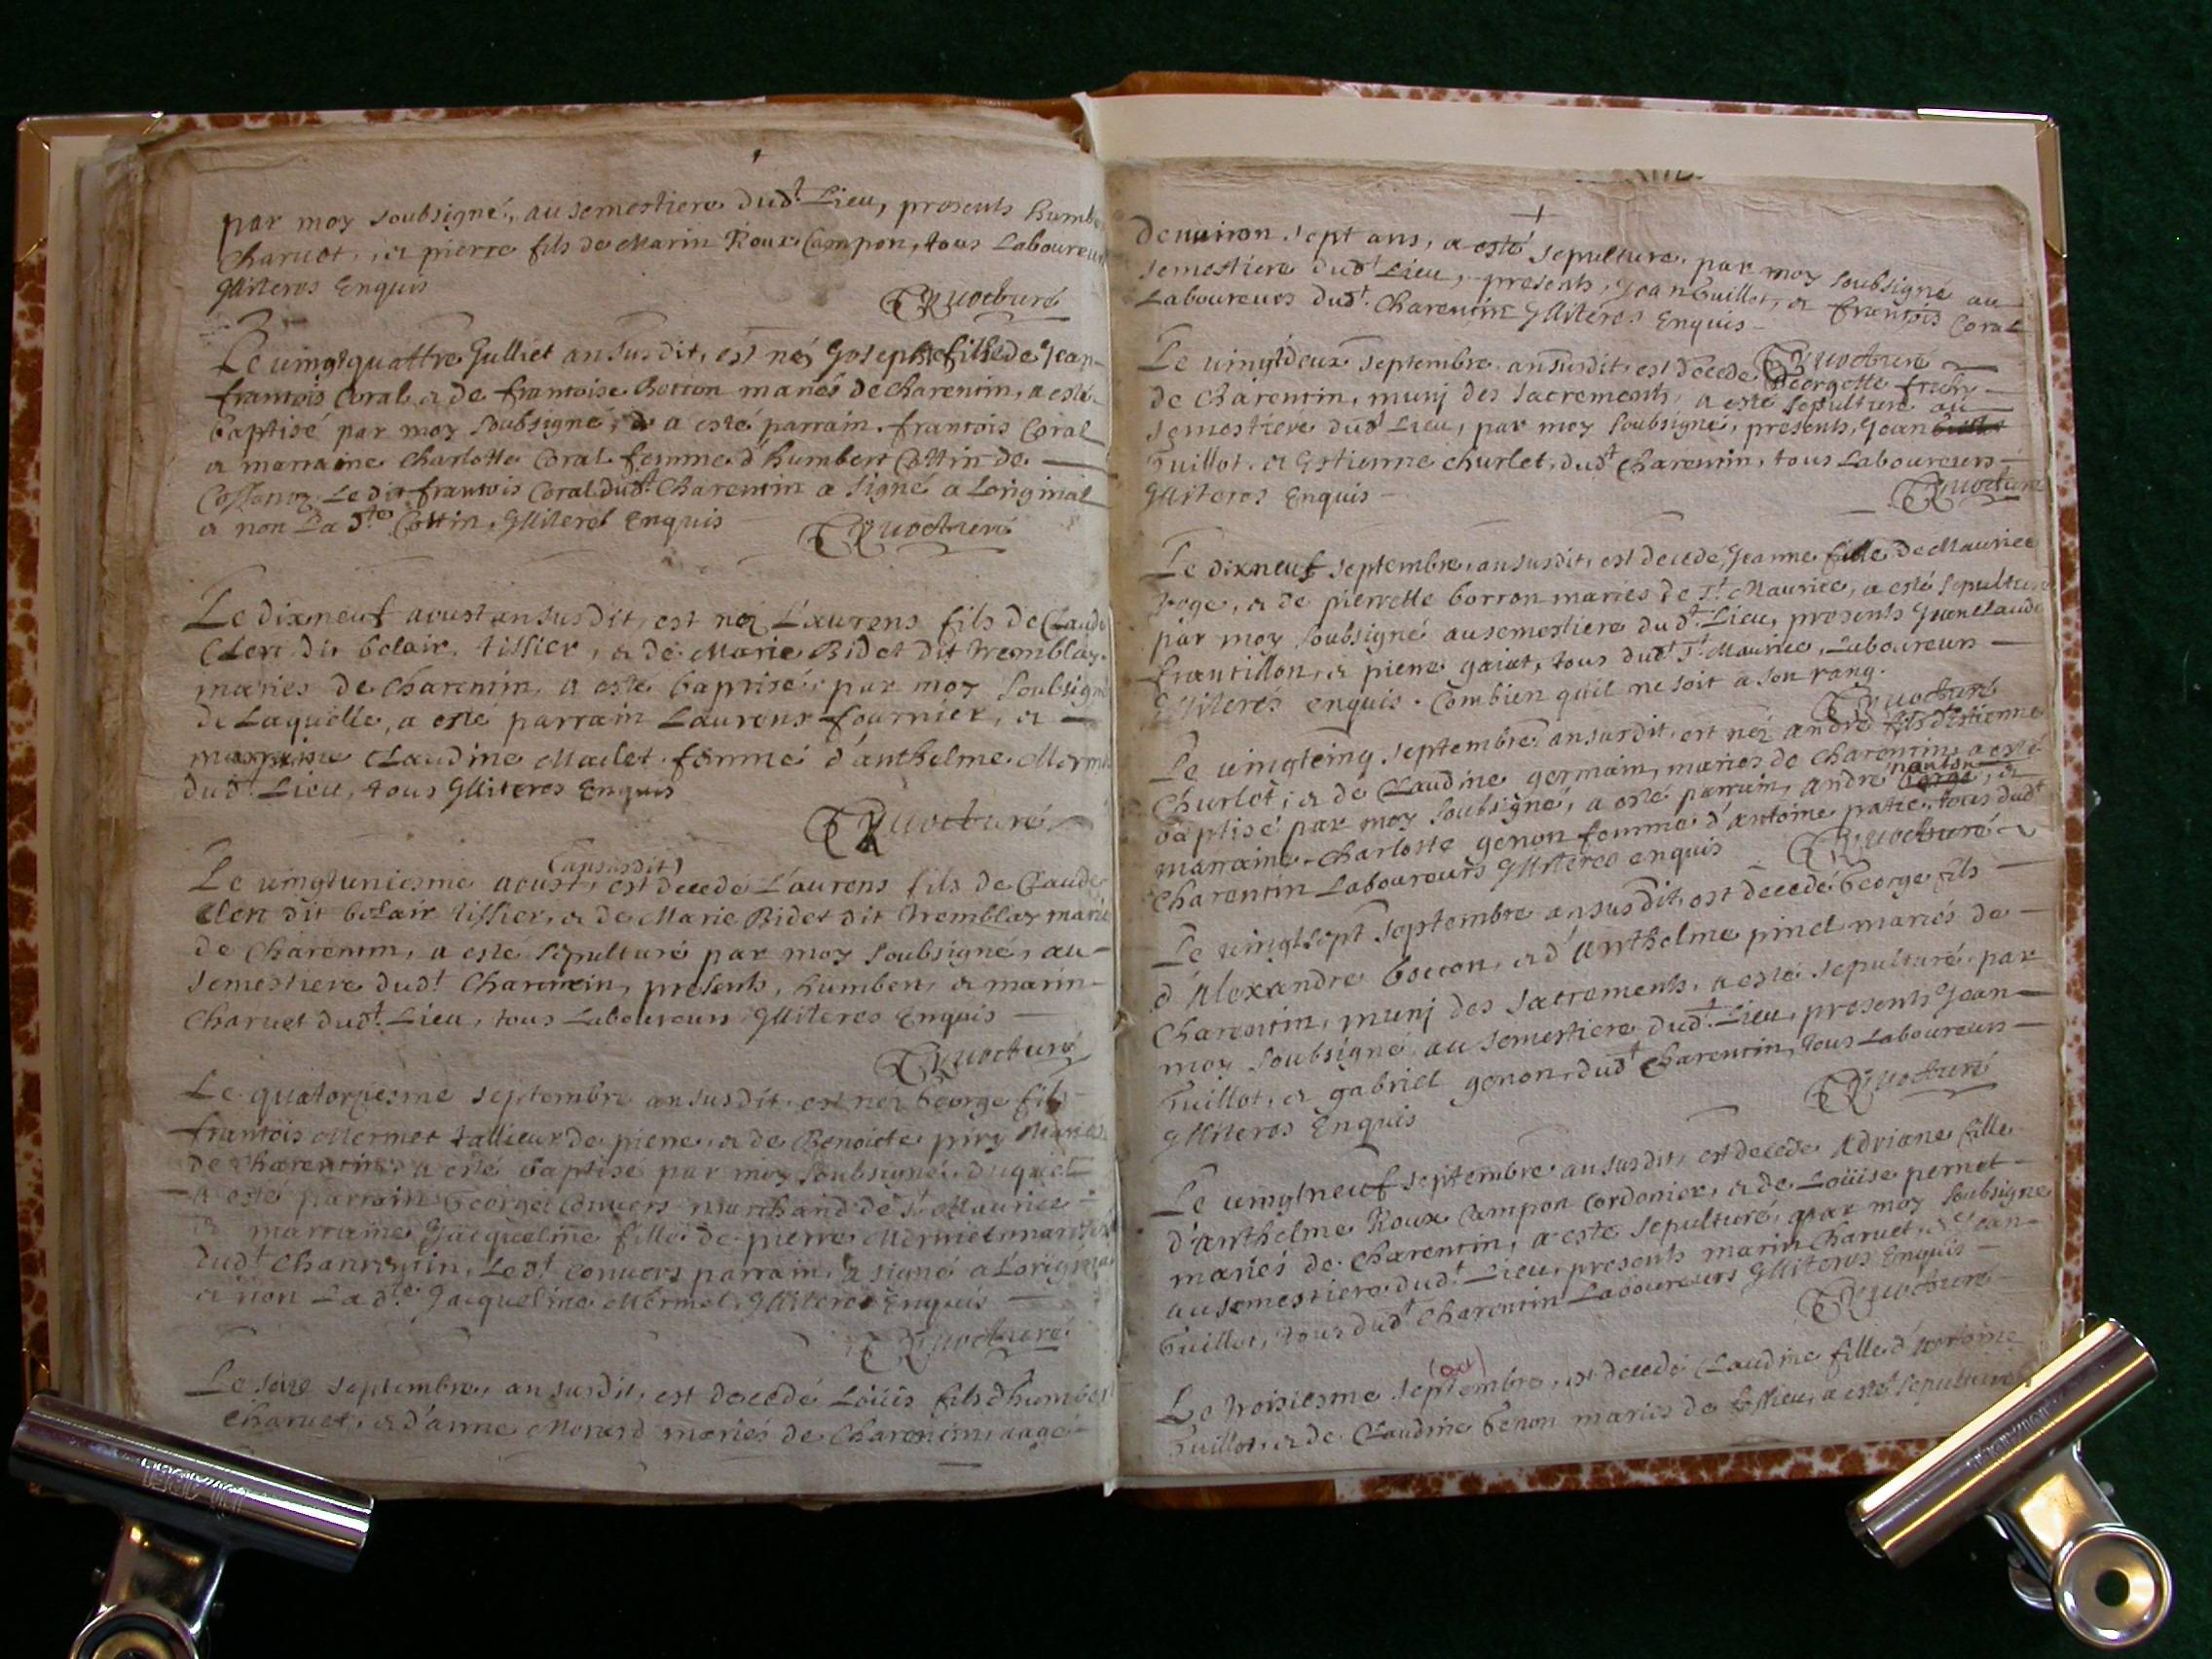 par moy soubsigné, au semestiere dudt Lieu, presents humb
Charuet, et pierre fils de Marin Roux Campon, tous Laboureu
Ylliteres Enquis
curé
Le uingtquattre Julliet ansusdit, est néj Joseph fils de Jean
francois Coral et de francoise Botton mariés de charentin, a esté
baptisé par moy soubsigné, a esté parrain francois Coral
et marraine Charlotte Coral femme d'humbert Cottin de
Le dit francois Coral dudt Charentin a signé a Loriginal
et non La dte Cottin, Ylliteres Enquis
curé
Le dixneuf aoust ansusdit, est néj Laurens fils de Claude
Clert dit belair, tissier, et de Marie Bidet dit tremblay
mariés de Charentin, a esté baptisé, par moy soubsigné
de Laquelle, a esté parrain Laurens fournier, et
marraine Claudine Maclet femme d'anthelme Merm
dudt Lieu, tous Ylliteres Enquis
curé
(ansusdit)
Le uingtuniesme aoust, est decedé Laurens fils de Claude
Clert dit belair tissier, et de Marie Bidet dit tremblay marié
de Charentin, a esté sepulturé par moy soubsigné, au
semestiere dudt Charentin, presents, humbert, et marin
Charuet dudt Lieu, tous Laboureurs Ylliteres Enquis
curé
Le quatorziesme septembre ansusdit est néj George fils
francois Mermet tallieur de piere, et de Benoiste mariés
de Charentin, a esté baptisé par moy soubsigné, duquel
a esté parrain George Conuers marchand de St Maurice
et marraine Jacqueline fille de pierre Mermet
dudt Charentin, Ledt Conuers parrain, a signé a Loriginal
et non La dte Jacqueline Mermet, Ylliteres Enquis
curé
Le seize septembre, ansusdit, est decedé Loüis fils d'humbert
Charuet, et d'anne Morard mariés de Charentin, aagé
denuiron sept ans, a esté sepulturé, par moy soubsigné au
semestiere dudt Lieu, presents, Jean Guillot, et francois Coral
Laboureurs dudt Charentin Ylliteres Enquis
curé
Le uingtdeux septembre ansusdit, est decedé Georgette
de Charentin, munj des Sacrements, a esté sepulturé au
semestiere dudt Lieu, par moy soubsigné, presents, Jean
Guillot, et Estienne Churlet, dudt Charentin, tous Laboureurs
Ylliteres Enquis
curé
Le dixneuf septembre, ansusdit, est decedé, Jeanne fille de Maurice
et de pierrette borron mariés de St Maurice, a esté sepulturé
par moy soubsigné au semestiere dudt Lieu, presents Jean Claude
frantillon, et piere gaiat, tous dudt St Maurice, Laboureurs
Ylliterés enquis. Combien quil ne soit a son rang.
curé
Le uingtcinq septembre ansusdit, est néj andré fils d'Estienne
Churlet, et de Claudine germain, mariés de Charentin, a esté
baptisé par moy soubsigné, a esté parrain, andré nanton, et
marraine Charlotte genon femme d'antoine patie, tous dudt
Charentin Laboureurs Ylliteres enquis
curé
Le uingtsept septembre ansusdit, est decedé George fils
d'Alexandre Boccon, et d'Anthelme pinel mariés de
Charentin, munj des Sacrements, a esté sepulturé par
moy soubsigné, au semestiere dudt Lieu, presents Jean
Guillot, et gabriel genon, dudt Charentin, tous Laboureurs
Ylliteres Enquis
curé
Le uingtneuf septembre ansusdit, est decedé Adriane fille
d'Anthelme Roux Campon Cordonier, et de Loüise pernet
mariés de Charentin, a esté sepulturé, par moy soubsigné
au semestiere dudt Lieu, presents marin Charuet, et Jean
Guillot, tous dudt Charentin Laboureurs Ylliteres Enquis
curé
(oct)
Le troisiesme septembre, est decedé Claudine fille d'
Guillot, et de Claudine Genon mariés de a esté sepulturé